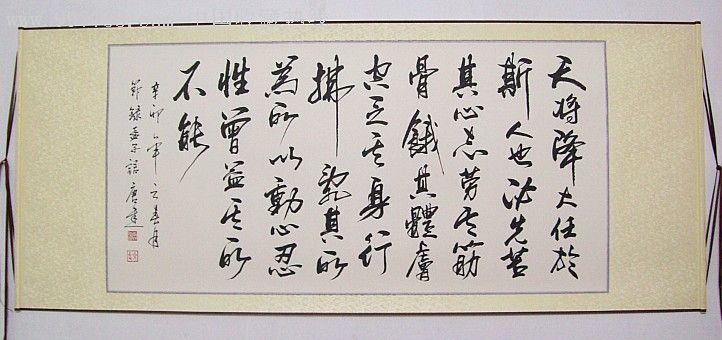 天将降大任於
斯人也必先苦
其心志劳其筋
骨餓其體膚
空乏其身行
拂乱其所
為所以動心忍
性曾益其所
不能
辛卯年之春月
節録孟子語唐